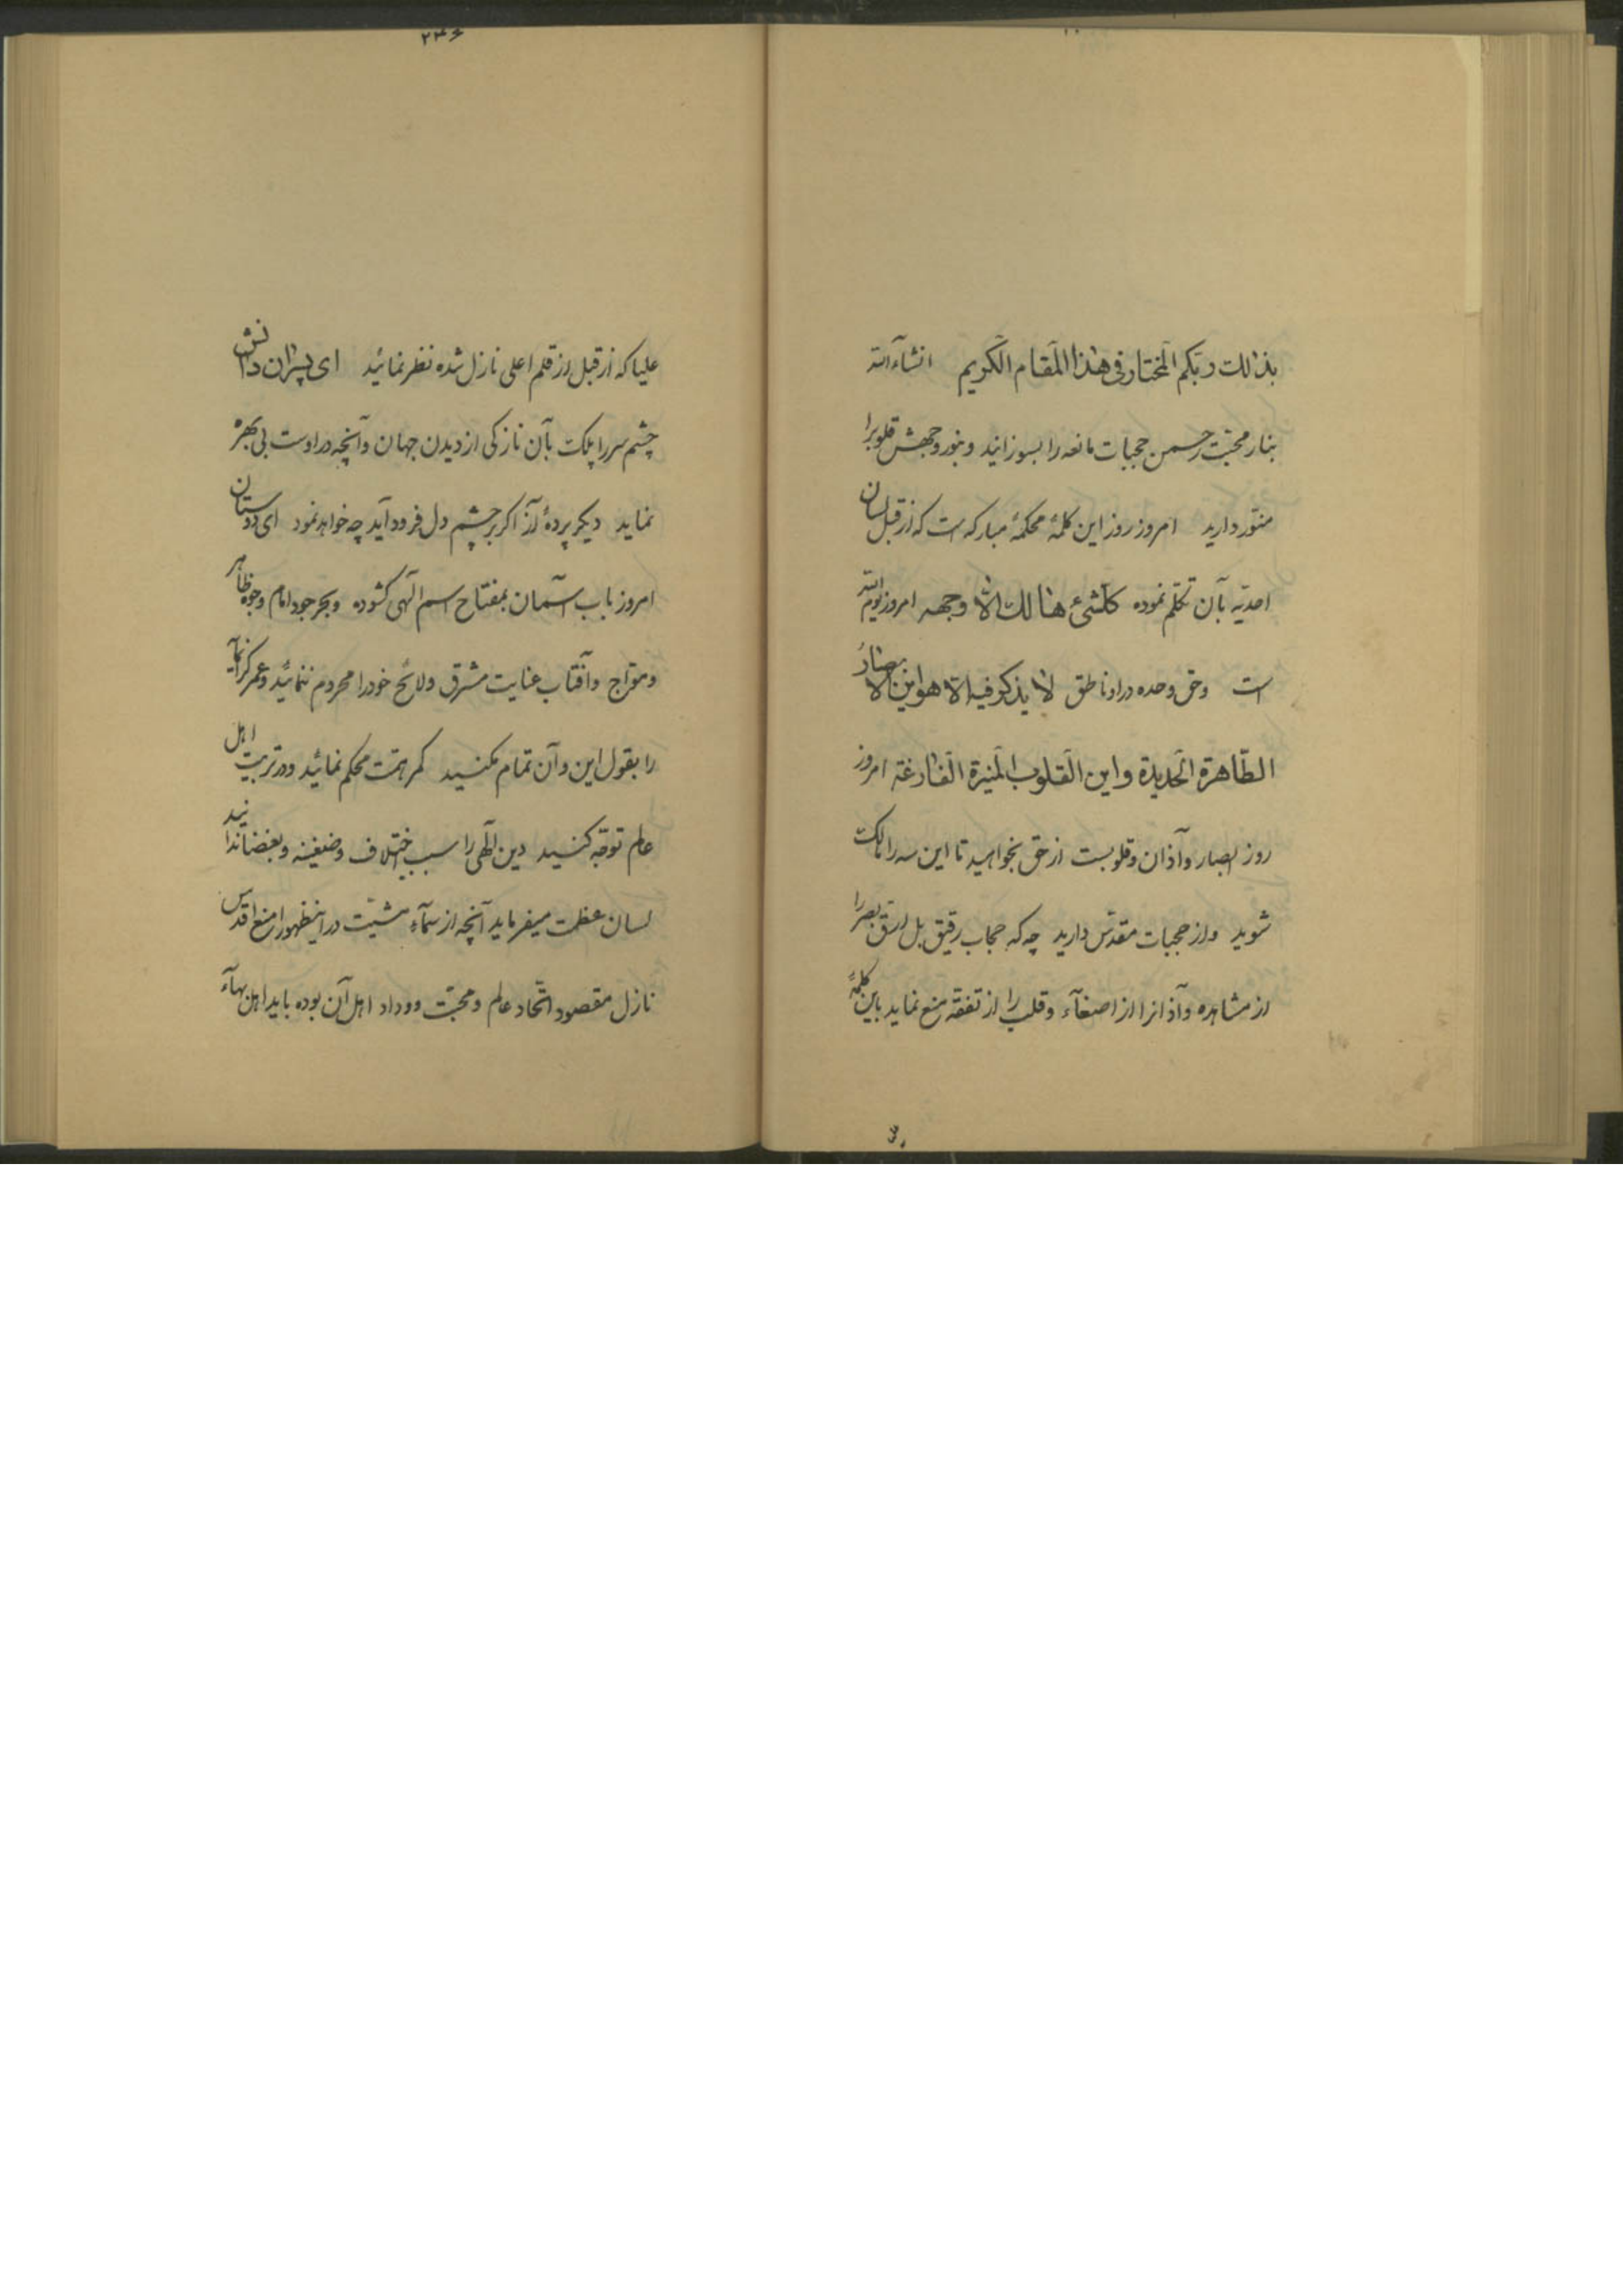 بذلک ربّکم المختار فی هذا المقام الکریم انشآءالله
بنار محبّت رحمن حجبات مانعه را بسوزانید و بنور وجهش قلوبرا
منوّر دارید امروز روز این کلمهٔ محکمهٔ مبارکه است که از قبل لسان
احدیّه بآن تکلّم نموده کلشیء هالک الّا وجهه امروز یوم الله
است و حق وحده در او ناطق لا یذکر فیه الّا هو این الابصار
الطّاهرة الحدیدة و این القلوب المنیرة الفارغة امروز
روز ابصار و آذان و قلوبست از حق بخواهید تا این سه را مالک
شوید و از حجبات مقدّس دارید چه که حجاب رقیق بل ارقّ بصر را
از مشاهده و آذانرا از اصغآء و قلب را از تفقّه منع نماید باین کلمهٔ
۳۰
۲۳۶
علیا که از قبل از قلم اعلی نازل شده نظر نمائید ای پسران دانش
چشم سر را پلک بآن نازکی از دیدن جهان و آنچه در اوست بی بهره
نماید دیگر پردهٔ آز اگر بر چشم دل فرود آید چه خواهد نمود ای دوستان
امروز باب آسمان بمفتاح اسم الهی گشوده و بحر جود امام وجوه ظاهر
و موّاج و آفتاب عنایت مشرق و لائح خود را محروم ننمائید و عمر گرانمایه
را بقول این و آن تمام مکنید کمر همّت محکم نمائید و در تربیت اهل
عالم توجّه کنید دین الهی را سبب اختلاف و ضغینه و بغضا ندانید
لسان عظمت میفرماید آنچه از سمآء مشیّت در اینظهور امنع اقدس
نازل مقصود اتّحاد عالم و محبّت و وداد اهل آن بوده باید اهل بهآء